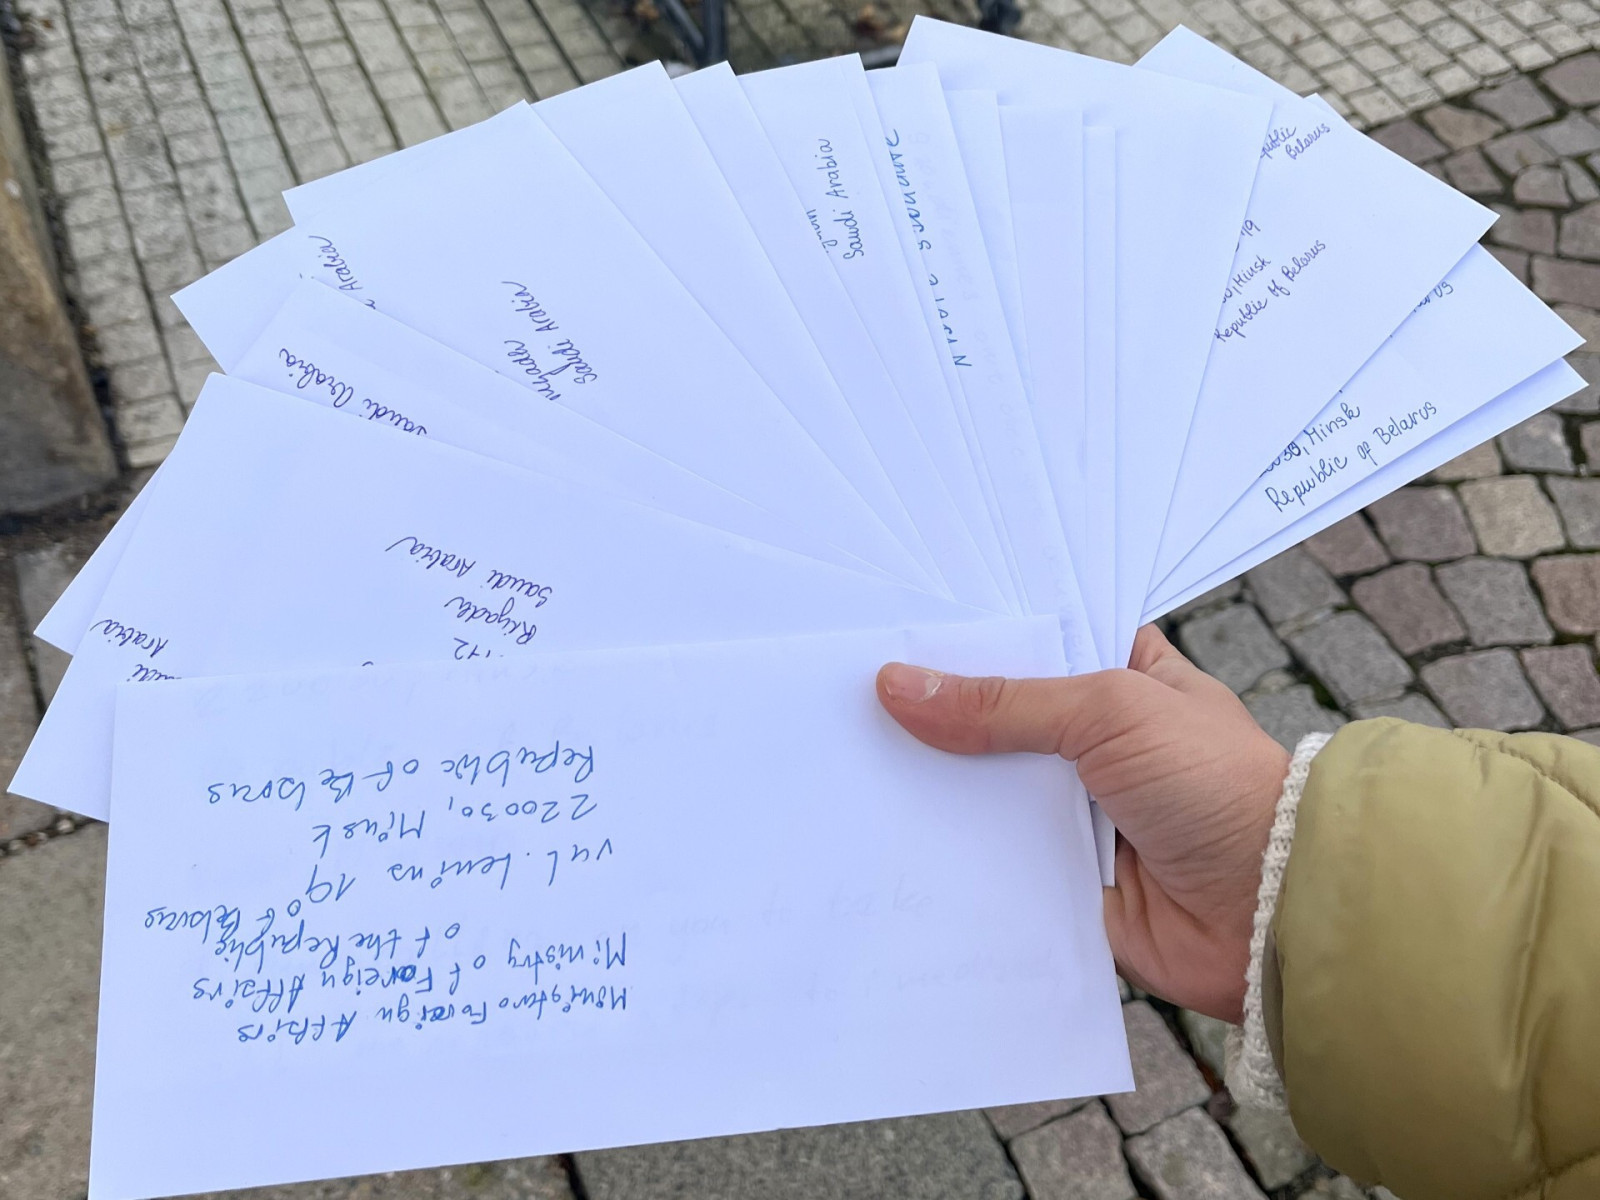 Ministaro Foreign Affairs
Ministry of Foreign Affairs
of the Republic
of Belarus
vul. Lenins 19
220030, Minsk
Republic of Belarus
Arabia
Riyadh
Saudi Arabia
Saudi Arabia
Arabia
Riyadh
Saudi Arabia
Saudi Arabia
Belarus
19
Minsk
Republic of Belarus
Minsk
Republic of Belarus